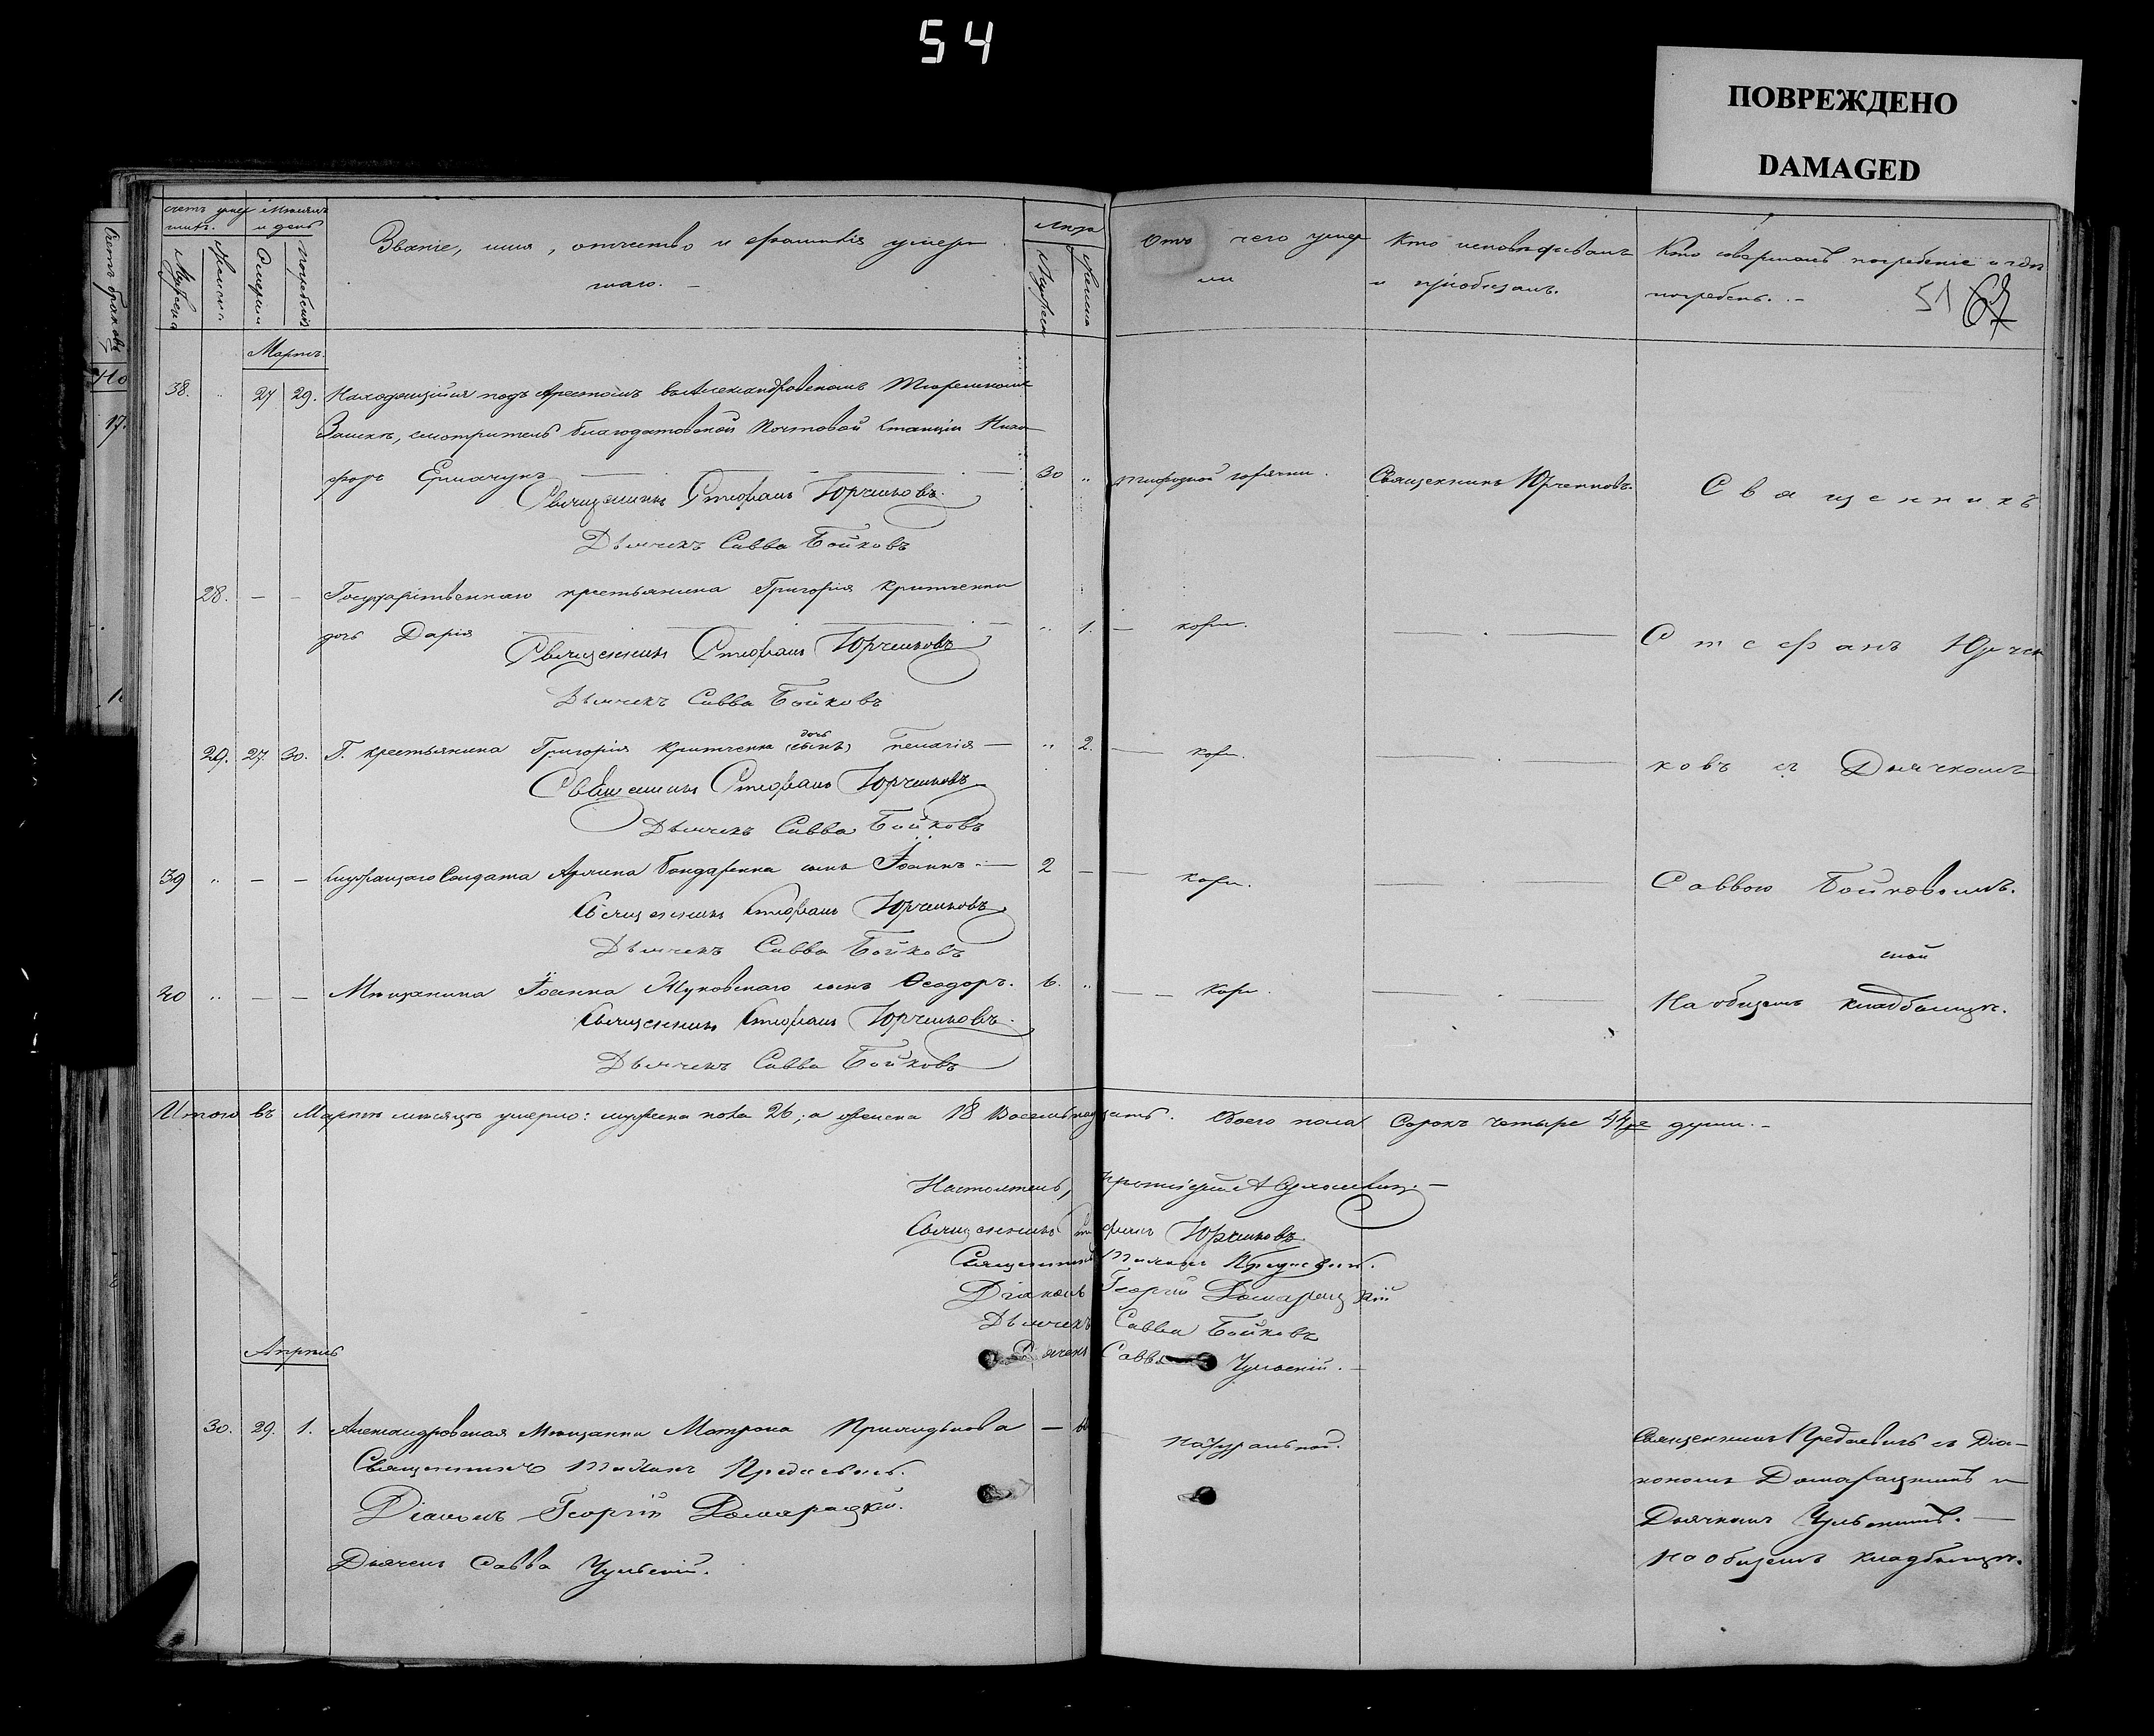 54
ПОВРЕЖДЕНО
DAMAGED
51 67
счетъ умер шихъ. Мѣсяцъ и день
Мужеска Женска Смерти Погребенія
Званіе, имя, отчество и фамилія умер
шаго. —
Лѣта
Мужеска Женска
Отъ чего умер
ли
Кто исповѣдывалъ
и пріобщалъ.
Кто совершалъ погребеніе и гдѣ
погребенъ. —
Счетъ браковъ
17.
Мартъ.
38. " 27 29. Находящійся подъ Арестомъ въ Александровскомъ Тюремномъ
Замкѣ, смотритель благодатовской Почтовой Станціи Ники
форъ Ермачукъ — 30 " тифозной горячки. Священникъ Юрченковъ. Священникъ
Священникъ Стефанъ Юрченковъ.
Дьячекъ Савва Бойковъ
28. — — Государственнаго крестьянина Григорія Критченки
дочь Дарія — " 1. — кори. — Стефанъ Юрчен
Священникъ Стефанъ Юрченковъ
Дьячекъ Савва Бойковъ
29. 27. 30. Г. крестьянина Григорія Критченка (сынъ) дочь Пелагія — " 2. — кори. — ковъ съ Дьячкомъ
Священникъ Стефанъ Юрченковъ
Дьячекъ Савва Бойковъ
39 " — — служащаго Солдата Бондаренка сынъ Іоаннъ — 2 — кори. — Саввою Бойковымъ.
Священникъ Стефанъ Юрченковъ
Дьячекъ Савва Бойковъ
40 " — — Мѣщанина Іоанна Жуковскаго сынъ Ѳеодоръ. 6. " — кори. — На общемъ кладбищѣ.
Священникъ Стефанъ Юрченковъ.
Дьячекъ Савва Бойковъ
Итого въ Мартѣ мѣсяцѣ умерло: мужеска пола 26, а женска 18 Восемьнадцать. Обоего пола Сорокъ четыре 44ре души. —
Настоятель, Протоіерей
Священникъ Стефанъ Юрченковъ.
Священникъ
Діаконъ Георгій Домарацкій
Дьячекъ Савва Бойковъ
Дьячекъ Савва Чульскій. —
Апрѣль
30. 29. 1. Александровская Мѣщанка Матрона — натуральной. Священникъ съ Діа-
Священникъ
кономъ Домарацкимъ и
Діаконъ Георгій Домарацкій.
Дьячкомъ Чульскимъ. —
Дьячекъ Савва Чульскій.
На общемъ кладбищѣ.